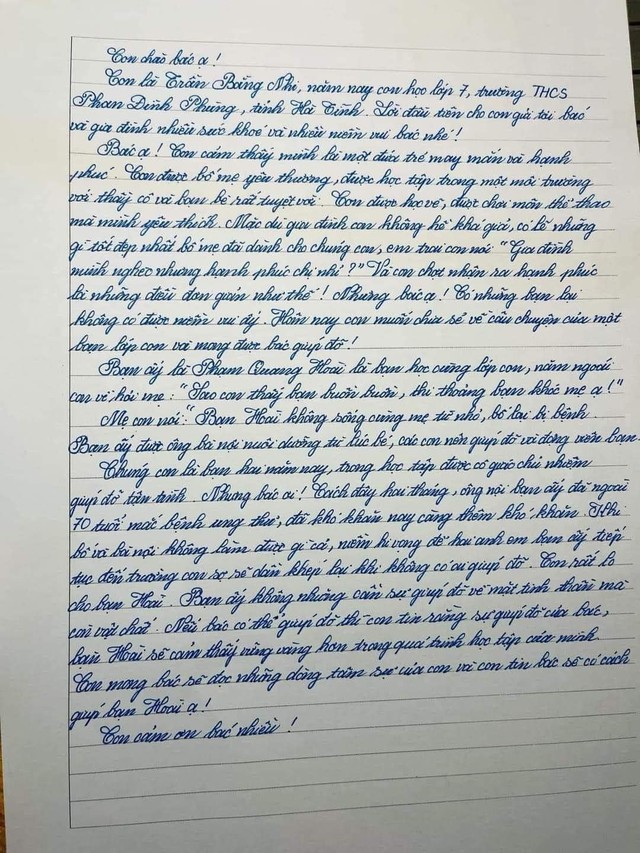 Con chào bác ạ!
Con là Trần Băng Nhi, năm nay con học lớp 7, trường THCS
Phan Đình Phùng, tỉnh Hà Tĩnh. Lời đầu tiên cho con gửi tới bác
và gia đình nhiều sức khoẻ và nhiều niềm vui bác nhé!
Bác ạ! Con cảm thấy mình là một đứa trẻ may mắn và hạnh
phúc. Con được bố mẹ yêu thương, được học tập trong một môi trường
với thầy cô và bạn bè rất tuyệt vời. Con được học vẽ, được chơi môn thể thao
mà mình yêu thích. Mặc dù gia đình con không hề khá giả, có lẽ những
gì tốt đẹp nhất bố mẹ đã dành cho chúng con, em trai con nói "Gia đình
mình nghèo nhưng hạnh phúc chị nhỉ?" Và con chợt nhận ra hạnh phúc
là những điều đơn giản như thế! Nhưng bác ạ! Có những bạn lại
không có được niềm vui ấy. Hôm nay con muốn chia sẻ về câu chuyện của một
bạn lớp con và mong được bác giúp đỡ!
Bạn ấy là Phạm Quang Hoài là bạn học cùng lớp con, năm ngoái
con về hỏi mẹ: "Sao con thấy bạn buồn buồn, thi thoảng bạn khóc mẹ ạ!"
Mẹ con nói: "Bạn Hoài không sống cùng mẹ từ nhỏ, bố lại bị bệnh
Bạn ấy được ông bà nội nuôi dưỡng từ lúc bé, các con nên giúp đỡ và động viên bạn.
Chúng con là bạn hai năm nay, trong học tập được cô giáo chủ nhiệm
giúp đỡ tận tình. Nhưng bác ơi! Cách đây hai tháng, ông nội bạn ấy đã ngoài
70 tuổi mắc bệnh ung thư, đã khó khăn nay càng thêm khó khăn. Khi
bố và bà nội không làm được gì cả, niềm hi vọng để hai anh em bạn ấy tiếp
tục đến trường con sợ sẽ dần khép lại khi không có ai giúp đỡ. Con rất lo
cho bạn Hoài. Bạn ấy không những cần sự giúp đỡ về mặt tinh thần mà
còn vật chất. Nếu bác có thể giúp đỡ thì con tin rằng sự giúp đỡ của bác,
bạn Hoài sẽ cảm thấy vững vàng hơn trong quá trình học tập của mình.
Con mong bác sẽ đọc những dòng tâm sự của con và con tin bác sẽ có cách
giúp bạn Hoài ạ!
Con cảm ơn bác nhiều!